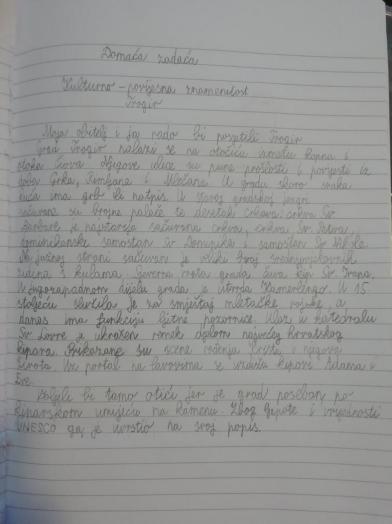 Domaća zadaća
Kulturno - povijesna znamenitost
Trogir
Moja obitelj i ja rado bi posjetili Trogir
Grad Trogir nalazi se na otočiću između kopna i
otoka Čiova. Njegove ulice su pune prošlosti i povijesti iz
doba Grka, Rimljana i Mlečana. U gradu skoro svaka
kuća ima grb ili natpis. U staroj gradskoj jezgri
sačuvane su brojne palače te desetak crkava: crkva Sv.
Barbare je najstarija sačuvana crkva, crkva Sv. Petra,
dominikanski samostan Sv. Dominika i samostan Sv. Nikole.
Na južnoj strani sačuvani je veliki broj srednjovjekovnih
zidina s kulama. Sjeverna vrata grada čuva kip Sv. Ivana.
U jugozapadnom dijelu grada je utvrda Kamerlengo. U 15.
stoljeću služila je za smještaj mletačke vojske, a
danas ima funkciju ljetne pozornice. Ulaz u katedralu
Sv. Lovre je ukrašen romek djelom najvećeg hrvatskog
kipara. Prikazane su scene rođenja Krista i njegovog
života. Uz portal na lavovima se nalaze kipovi Adama i
Eve.
Voljeli bi tamo otići jer je grad poseban po
kiparskom umijeću na kamenu. Zbog ljepote i vrijednosti
UNESCO ga je uvrstio na svoj popis.